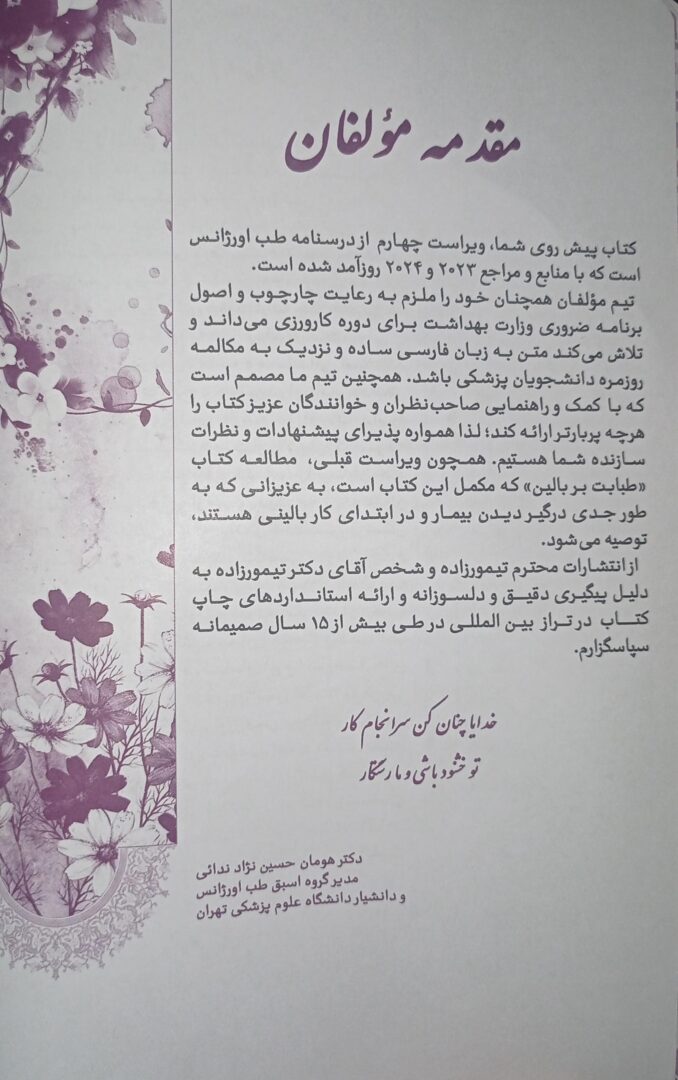 مقدمه مؤلفان
کتاب پیش روی شما، ویراست چهارم از درسنامه طب اورژانس
است که با منابع و مراجع ۲۰۲۳ و ۲۰۲۴ روزآمد شده است.
تیم مؤلفان همچنان خود را ملزم به رعایت چارچوب و اصول
برنامه ضروری وزارت بهداشت برای دوره کارورزی می‌داند و
تلاش می‌کند متن به زبان فارسی ساده و نزدیک به مکالمه
روزمره دانشجویان پزشکی باشد. همچنین تیم ما مصمم است
که با کمک و راهنمایی صاحب‌نظران و خوانندگان عزیز کتاب را
هرچه پربارتر ارائه کند؛ لذا همواره پذیرای پیشنهادات و نظرات
سازنده شما هستیم. همچون ویراست قبلی، مطالعه کتاب
«طبابت بر بالین» که مکمل این کتاب است، به عزیزانی که به
طور جدی درگیر دیدن بیمار و در ابتدای کار بالینی هستند،
توصیه می‌شود.
از انتشارات محترم تیمورزاده و شخص آقای دکتر تیمورزاده به
دلیل پیگیری دقیق و دلسوزانه و ارائه استانداردهای چاپ
کتاب در تراز بین المللی در طی بیش از ۱۵ سال صمیمانه
سپاسگزارم.
خدایا چنان کن سرانجام کار
تو خشنود باشی و ما رستگار
دکتر هومان حسین نژاد ندائی
مدیر گروه اسبق طب اورژانس
و دانشیار دانشگاه علوم پزشکی تهران